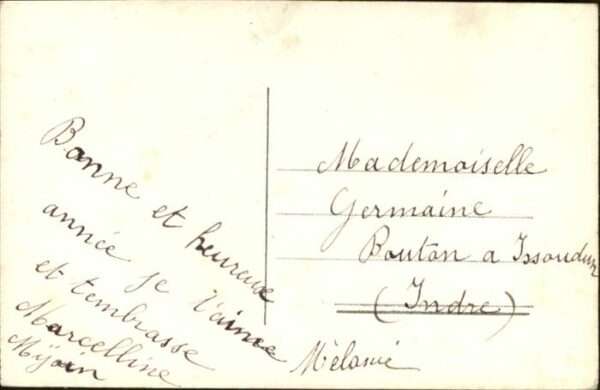 Bonne et heureuse
année je t'aime
et t'embrasse
Marcelline
Mademoiselle
Germaine
Bouton a Issoudun
(Indre)
Mélanie